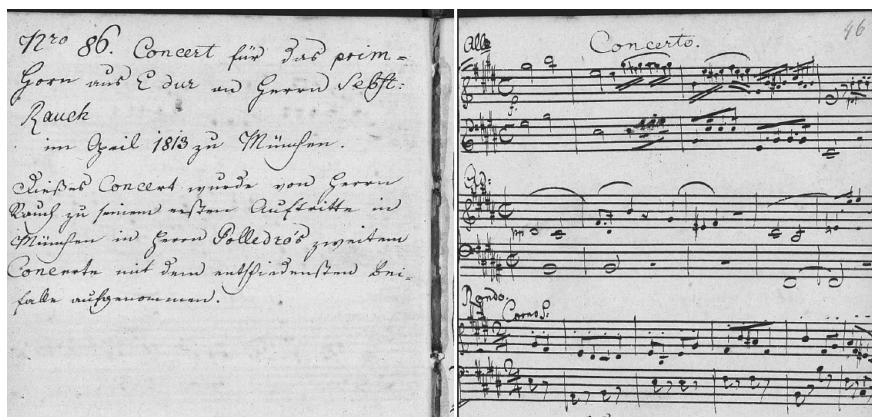 Nro 86. Concert für das prim=
Horn aus E dur an Herrn Sebst:
Rauch
im April 1813 zu München.
Dießes Concert wurde von Herrn
Rauch zu seinem ersten Auftritte in
München in Herrn Polledro's zweitem
Concerte mit dem entschiedensten Bei-
falle aufgenommen.
46
Allo
Concerto.
pp
And:
pp
Rondo.
Corno S: